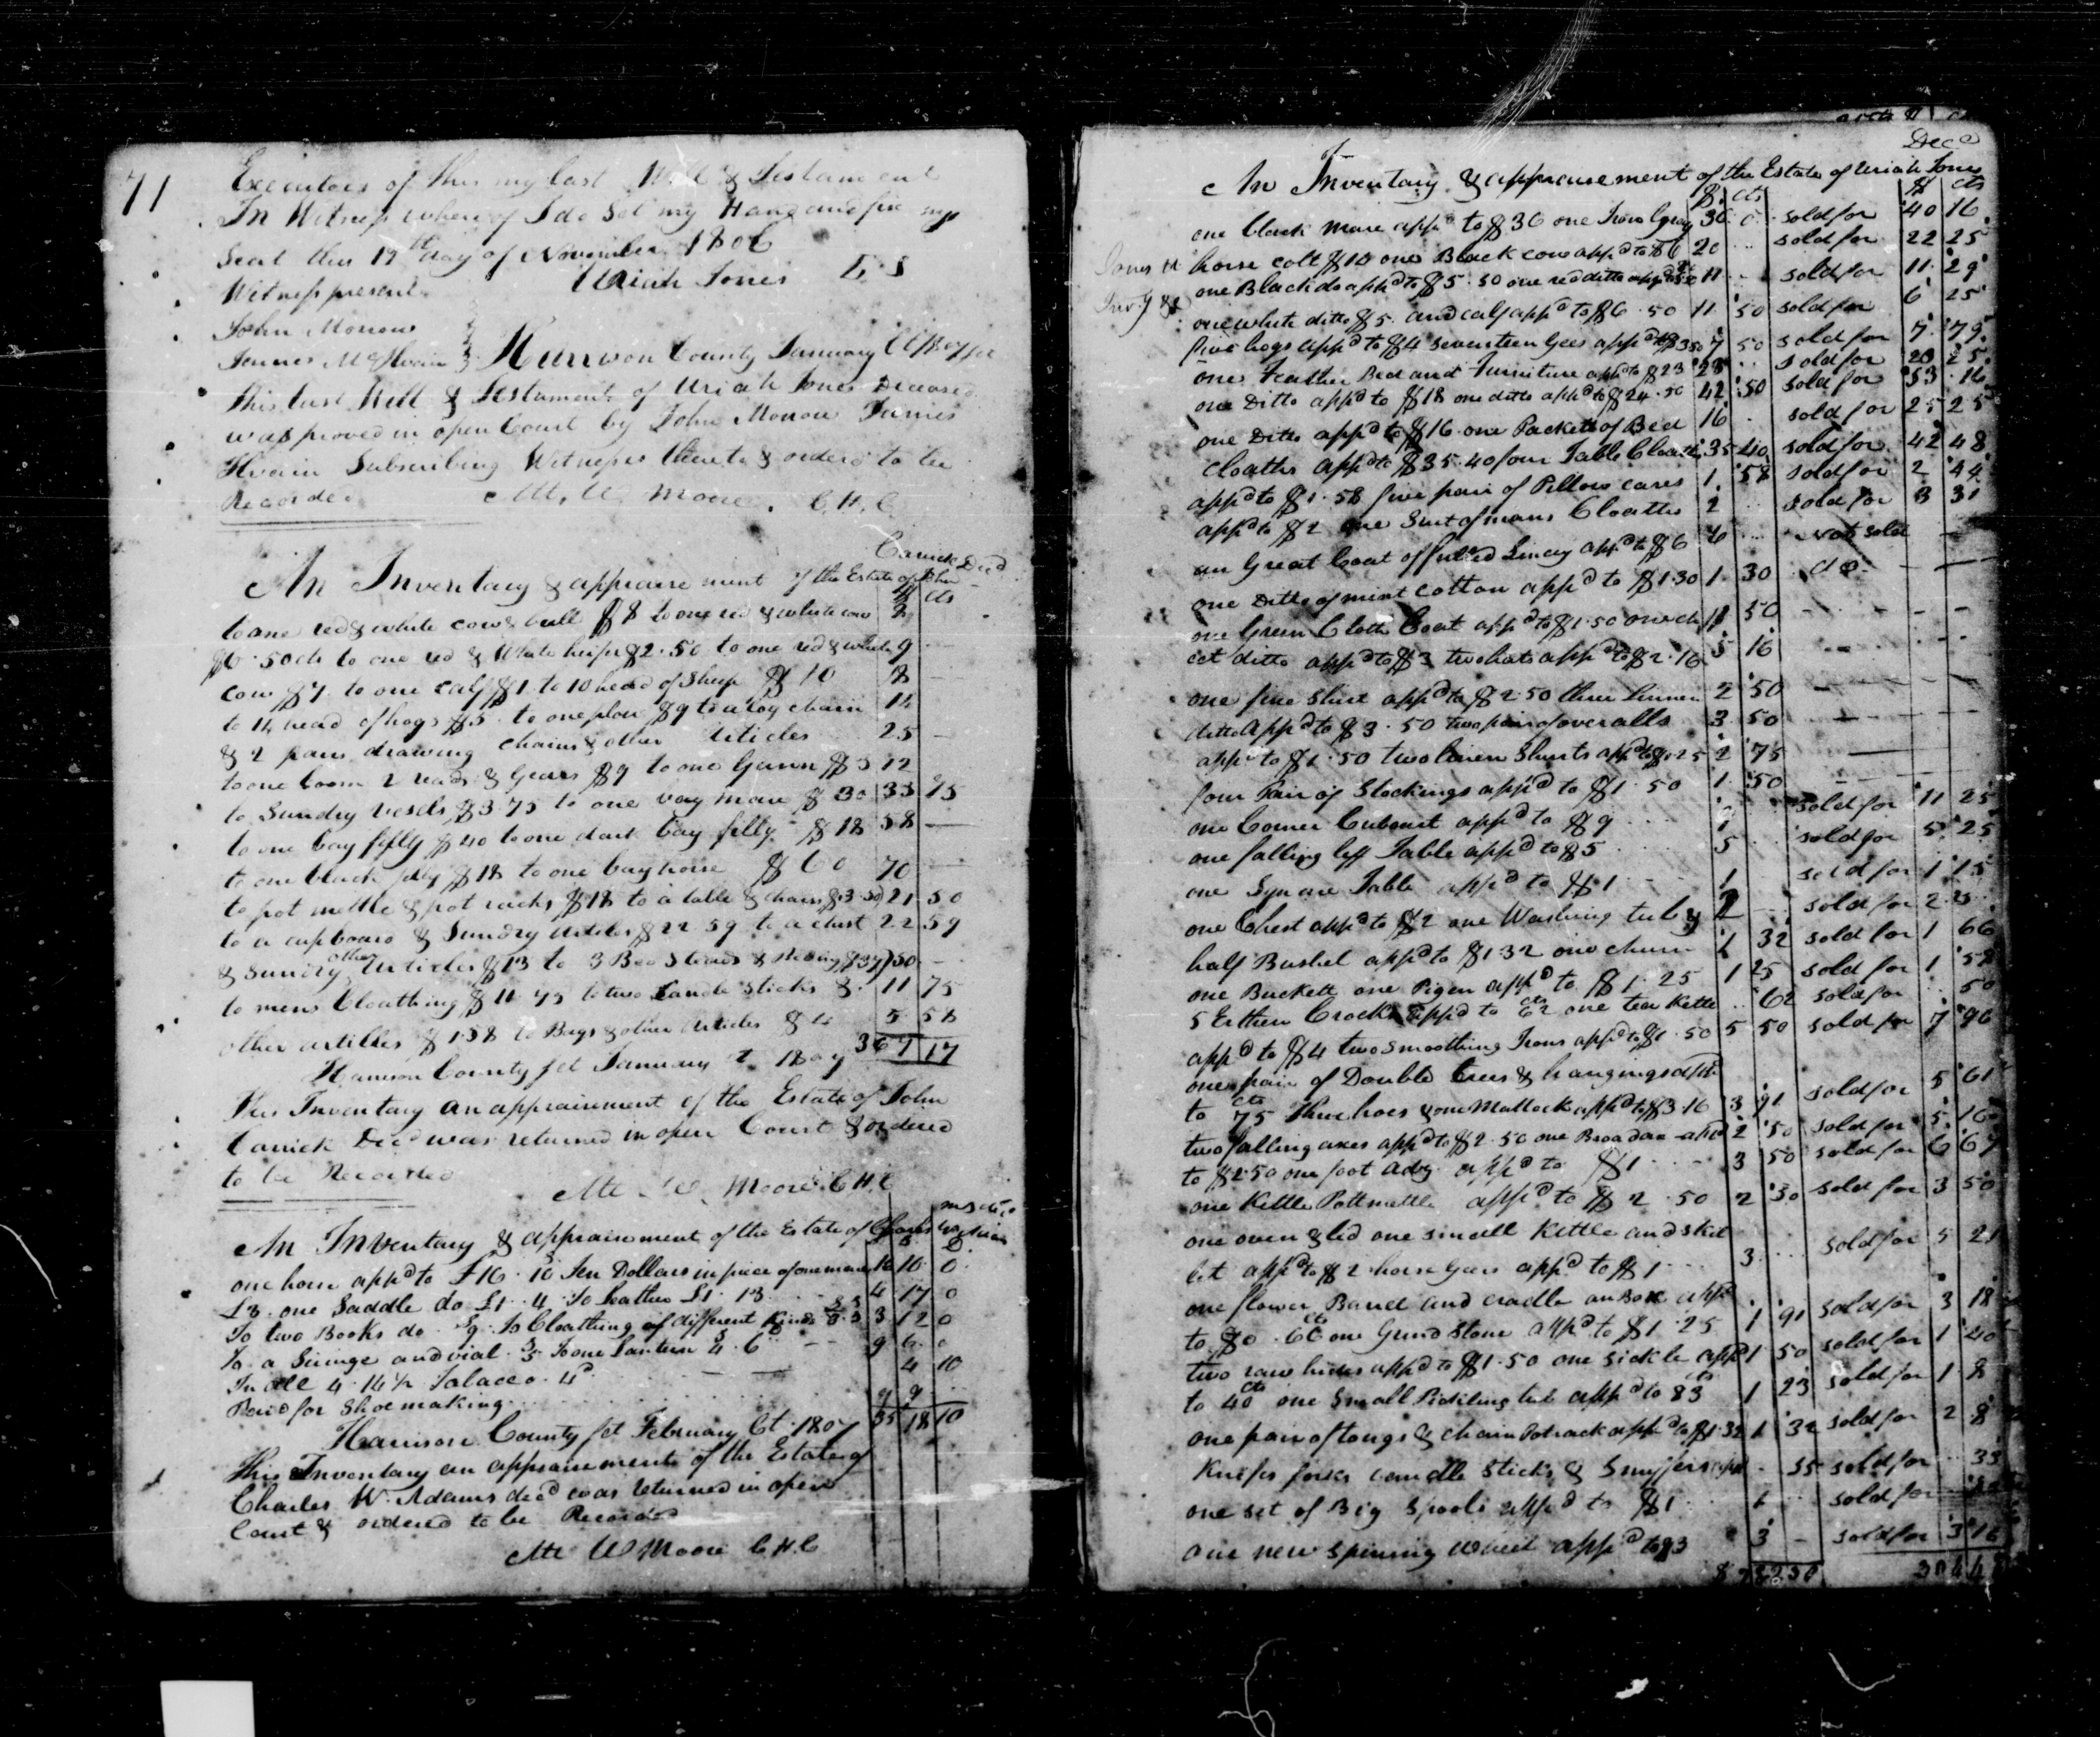 71
Executors of this my last Will & Testament
In Witness where of I do Set my Hand and fix my
Seal this 19th day of November 1806
Witness present Uriah Jones L.S
John Morrow
James McIlvain Harrison County January Ct 1807 for
This last Will & Testament of Uriah Jones Deceased
was proved in open Court by John Morrow James
Ilvain Subscribing Witnesses thereto & ordered to be
Recorded Atte W Moore. C.H.C
Carrick Decd
An Inventory & appraisement of the Estate of John
$ cts
to one red & white cow & bell $8 to one red & white cow
$6.50cts to one red & White heifer $2.50 to one red & white 9
cow $7 to one calf $1. to 10 head of Sheep $10 8 —
to 14 head of hogs $5. to one plow $9 to a log chain 14
& 2 pair drawing chains & other Articles 25 —
to one loom 2 reads & Gears $9 to one Gunn $3 12
to Sundry vesels $3.75 to one bay mare $30 33 75
to one bay filly $40 to one dark bay filly $18 58 —
to one black filly $18 to one bay horse $60 70 —
to pot mettle & pot racks $18 to a table & chairs $3.50 21 50
to a cupboard & Sundry articles $22 59 to a chest 22 59
& Sundry other Articles $13 to 3 Bed Steads & Beding $37 50 —
to mens Cloathing $11 75 to two Candle Sticks & 11 75
other articles $1.58 to Bags & other Articles $4 5 58
367 17
Harrison County sct January Ct 1807
This Inventory an appraisement of the Estate of John
Carrick Decd was returned in open Court & ordered
to be Recorded
Atte W Moore C.H.C
An Inventory & appraisement of the Estate of Charles
one horse appd to £16.10 Ten Dollars in price of one mare 16 10 0
£3. one Saddle do £1.4 To leather £1.13 4 17 0
To two Books do 9 To Cloathing of different kinds 3 12 0
To a Siringe and vial 5 To one Lantern 4.6 9 6 0
In all 4.14½ Tobacco 4d 4 10
Paid for Shoemaking 9 9
35 18 10
Harrison County sct February Ct 1807
This Inventory an appraisement of the Estate of
Charles W. Adams decd was returned in open
Court & ordered to be Recorded
Atte W Moore C.H.C
Decd
An Inventory & appraisement of the Estate of Uriah Jones
$ cts $ cts
one black mare appd to $36 one Iron Gray 36 0 sold for 40 16
horse colt $10 one Black cow appd to $6 20 .. sold for 22 25
one Black do appd to $5.50 one red ditto appd 11 .. sold for 11 29
one white ditto $5. and calf appd to $6.50 11 50 sold for 6 25
five hogs appd to $4 seventeen Gees appd to $3.50 7 50 sold for 7 79
one Feather Bed and Furniture appd to $23 23 .. sold for 23 25
one Ditto appd to $18 one ditto appd to $24.50 42 50 sold for 53 16
one Ditto appd to $16 one Packett of Bed 16 . sold for 25 25
Cloaths appd to $35.40 four Table Cloaths 35 40 sold for 42 48
appd to $1.58 five pair of Pillow cases 1 58 sold for 2 44
appd to $2 one Suit of mans Cloaths 2 .. sold for 3 31
an Great Coat of fulled Lincey appd to $6 6 .. not sold —
one Ditto of mixt cotton appd to $1.30 1 30 do — —
one Green Cloth Coat appd to $1.50 50 - - -
cot ditto appd to $3 two hats appd to $2.16 5 16
one fine Shirt appd to $2.50 three linnen 2 50 —
ditto appd to $3.50 two pair of over alls 3 50 —
appd to $1.50 two linen Shirts appd to $1.25 2 75 —
four Pair of Stockings appd to $1.50 1 50 —
one Corner Cuboart appd to $9 9 sold for 11 25
one falling leff Table appd to $5 5 sold for 5 25
one Square Table appd to $1 1 sold for 1 15
one Chest appd to $2 one Washing tub & 2 sold for 2 25
half Bushel appd to $1.32 one churn 1 32 sold for 1 66
one Buckett one Pigen appd to $1.25 1 25 sold for 1 58
5 Erthen Crocks appd to 62 cts one tea Kettle .. 62 sold for .. 50
appd to $4 two Smoothing Irons appd to $1.50 5 50 sold for 7 96
one pair of Double trees & hangings appd
to 75 cts three hoes & one Mattock appd to $3.16 3 91 sold for 5 61
two falling axes appd to $2.50 one Broad axe appd 2 50 sold for 5 16
to $2.50 one foot adz appd to $1 3 50 sold for 6 67
one Kettle Pottmettle appd to $2.50 2 50 sold for 3 50
one oven & led one small Kettle and skel
let appd to $2 horse Gees appd to $1 3 .. sold for 5 21
one flower Barrel and cradle an Box appd
to $0.66 cts one Grind Stone appd to $1.25 1 91 sold for 3 18
two raw hides appd to $1.50 one sickle appd 1 50 sold for 1 40
to 40 cts one Small Pickling tub appd to 83 cts 1 23 sold for 1 8
one pair of tongs & chain Potrack appd to $1.32 1 32 sold for 2 8
Knifes forks candle sticks & Snuffers appd - 35 sold for .. 33
one set of Big Spools appd to $1 1 .. sold for
one new spinning wheel appd to $3 3 - sold for 3 16